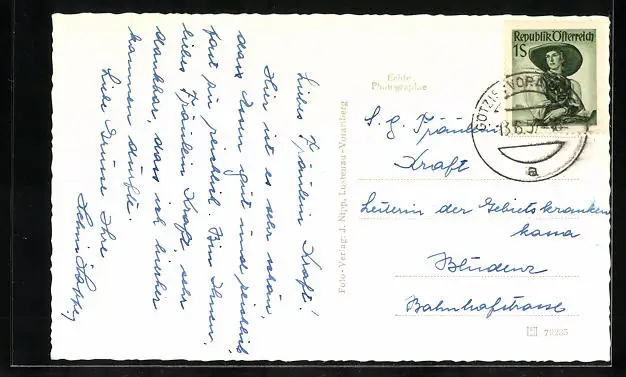 Liebes Fräulein Kraft!
Hier ist es sehr schön,
das Essen gut und reichlich
fast zu reichlich. Bin Ihnen,
liebes Fräulein Kraft sehr
dankbar, dass ich hierher
kommen durfte.
Liebe Grüsse Ihre
Foto-Verlag: J. Nipp, Lustenau-Vorarlberg
Echte
Photographie
Republik Österreich
1S
GÖTZIS
a
S. g. Fräulein
Kraft
Leiterin der Gebietskranken
kassa
Bludenz
Bahnhofstrasse